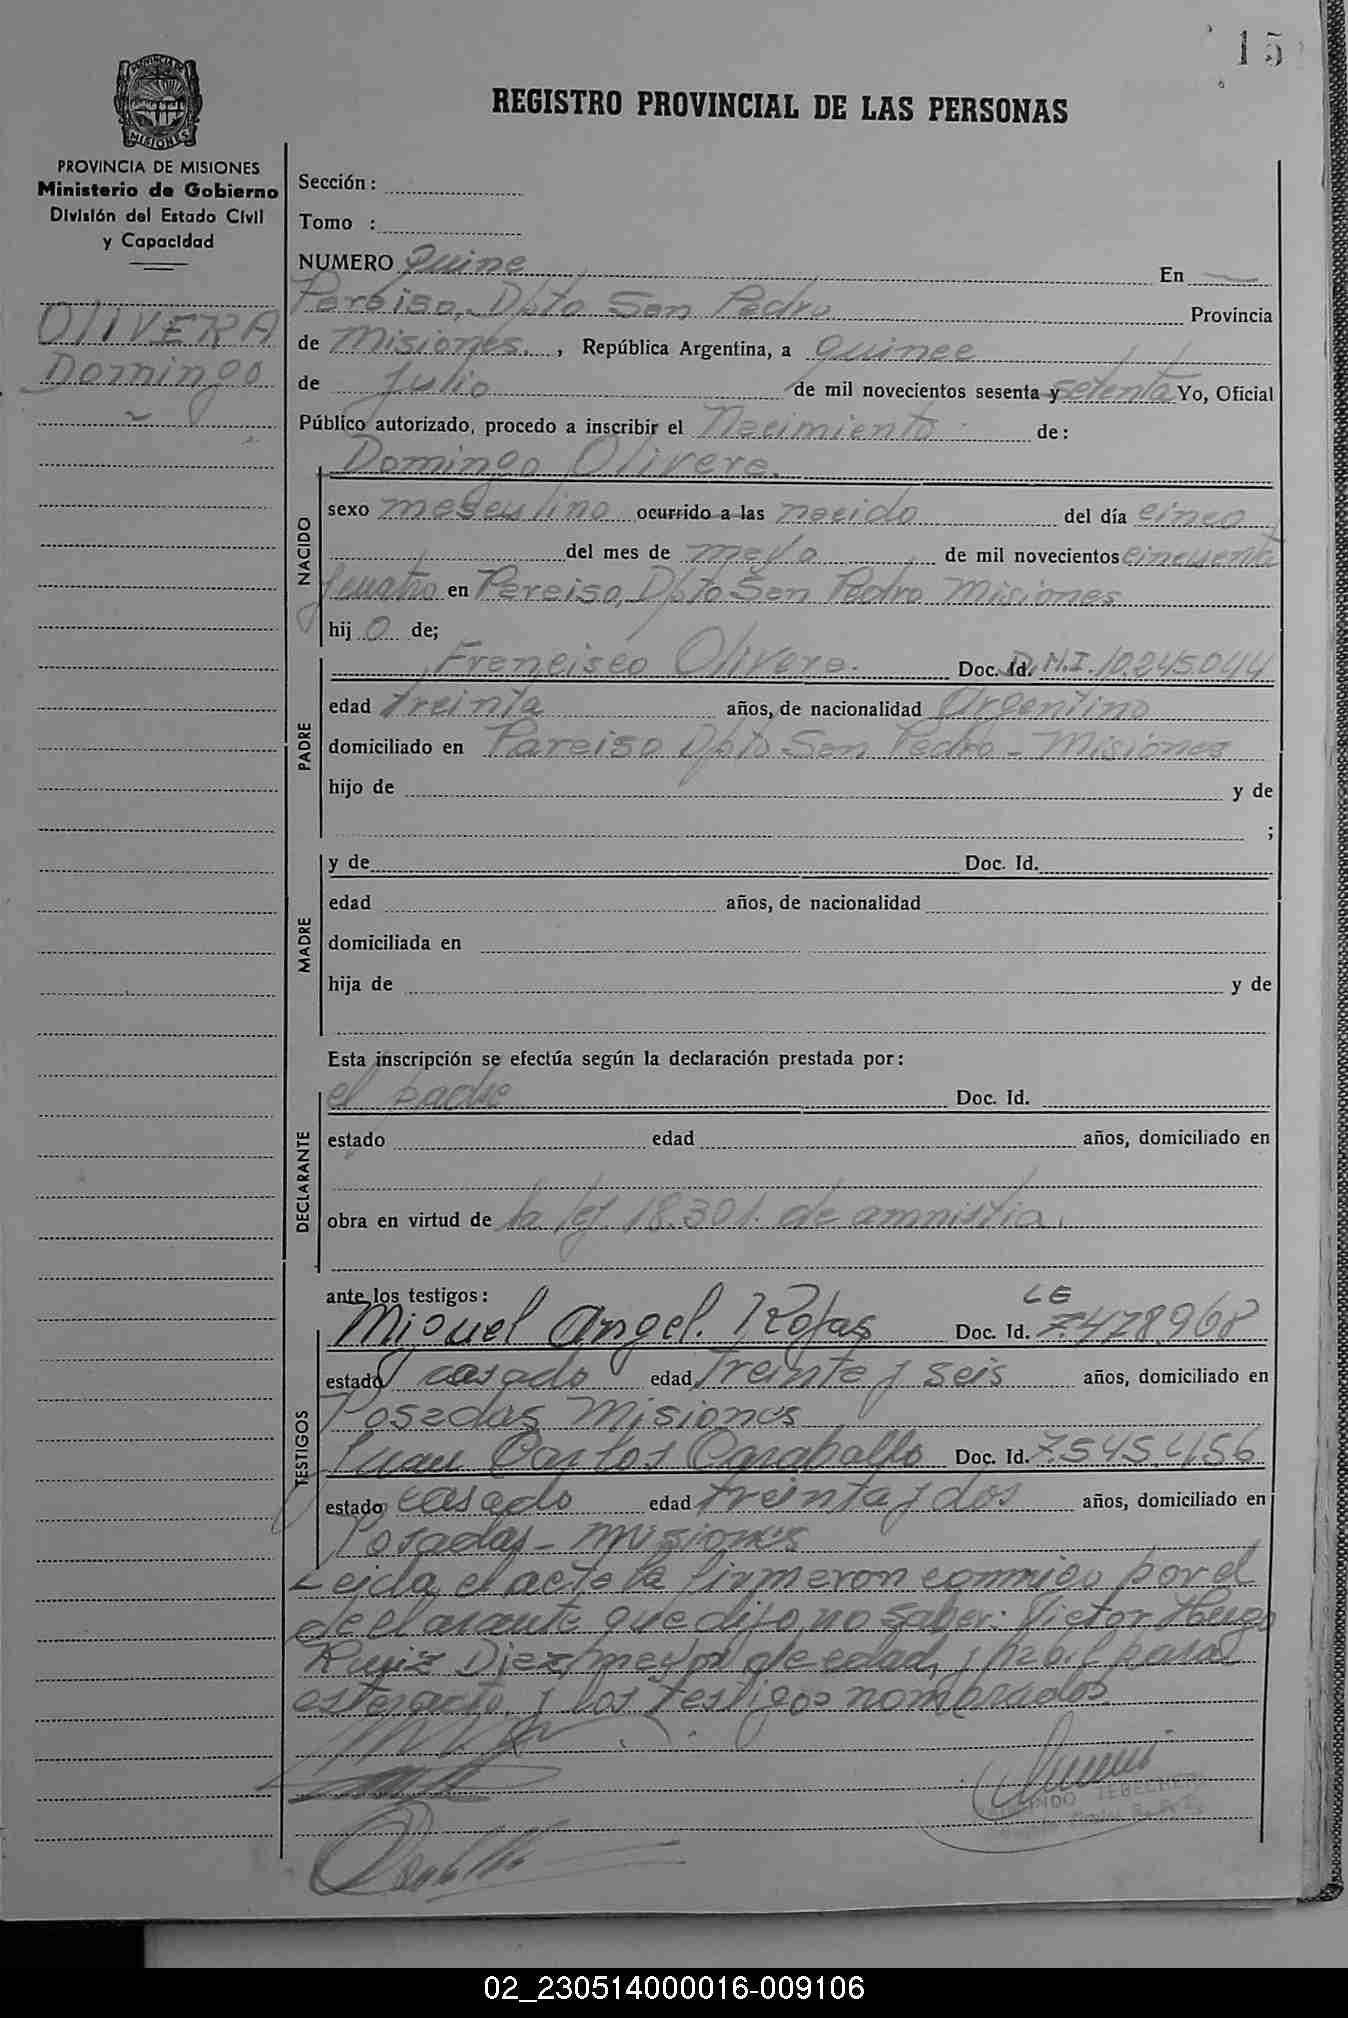 15
REGISTRO PROVINCIAL DE LAS PERSONAS
PROVINCIA DE MISIONES
Ministerio de Gobierno
División del Estado Civil
y Capacidad
OLIVERA
Domingo
Sección :
Tomo :
NUMERO Quine En
Pareiso, Dpto San Pedro Provincia
de Misiones. , República Argentina, a quince
de Julio de mil novecientos sesenta y setenta Yo, Oficial
Público autorizado, procedo a inscribir el Nacimiento de:
Domingo Olivera.
NACIDO
sexo masculino ocurrido a las nacido del día cinco
del mes de mayo de mil novecientos cincuenta
y cuatro en Pareiso, Dpto San Pedro Misiones
hij o de;
PADRE
Francisco Olivera. Doc. Id. D.N.I. 10.245.044
edad treinta años, de nacionalidad Argentino
domiciliado en Pareiso Dpto San Pedro - Misiones
hijo de y de
;
MADRE
y de Doc. Id.
edad años, de nacionalidad
domiciliada en
hija de y de
Esta inscripción se efectúa según la declaración prestada por:
DECLARANTE
el padre Doc. Id.
estado edad años, domiciliado en
obra en virtud de la ley 18.301. de amnistia.
ante los testigos:
TESTIGOS
Miguel Angel. Rojas Doc. Id. LE 7.478.968
estado casado edad treinta y seis años, domiciliado en
Posadas Misiones
Juan Carlos Caraballo Doc. Id. 7.545.456
estado casado edad treinta y dos años, domiciliado en
Posadas - Misiones
Leida el acta la firmaron conmigo por el
declarante que dijo no saber: Victor Hugo
Ruiz Diez mayor de edad, y habil para
este acto, y los testigos nombrados
02_230514000016-009106